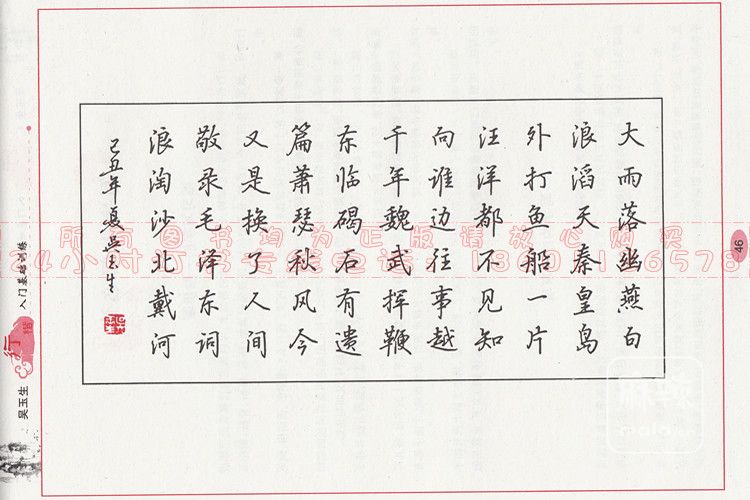 大雨落幽燕白
浪滔天秦皇岛
外打鱼船一片
汪洋都不见知
向谁边往事越
千年魏武挥鞭
东临碣石有遗
篇萧瑟秋风今
又是换了人间
敬录毛泽东词
浪淘沙北戴河
己丑年夏吴玉生
46
吴玉生
行楷
入门基础训练
所有图书均为正版请放心购买
24小时订书